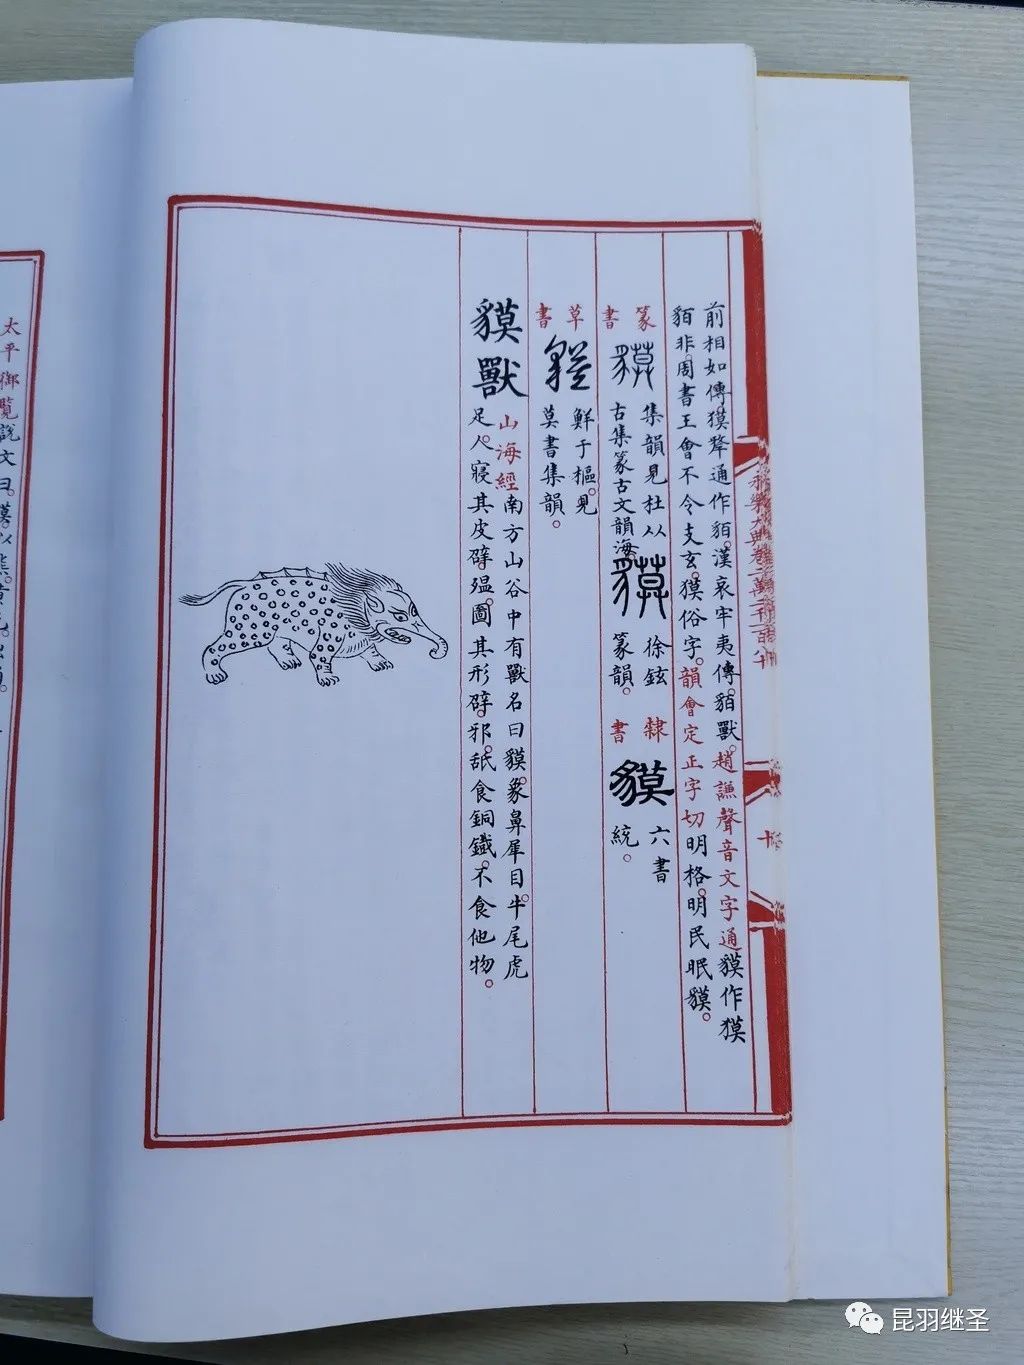 前相如傳獏犛通作貊。漢哀牢夷傳。貊獸。趙謙聲音文字通貘作獏
貊非。周書王會不令支玄。獏俗字。韻會定正字切明格。明民眠貘。
篆書
貘
集韻見杜从
古集篆古文韻海。
貘
徐鉉
篆韻。
隸書
貘
六書
統。
草書
貘
鮮于樞。見
莫書集韻。
貘獸
山海經南方山谷中有獸名曰貘。象鼻犀目。牛尾虎
足。人寢其皮辟。温。圖其形辟。邪。舐食銅鐵。不食他物。
太平御覽說文曰。貘。似熊。黃
昆羽继圣